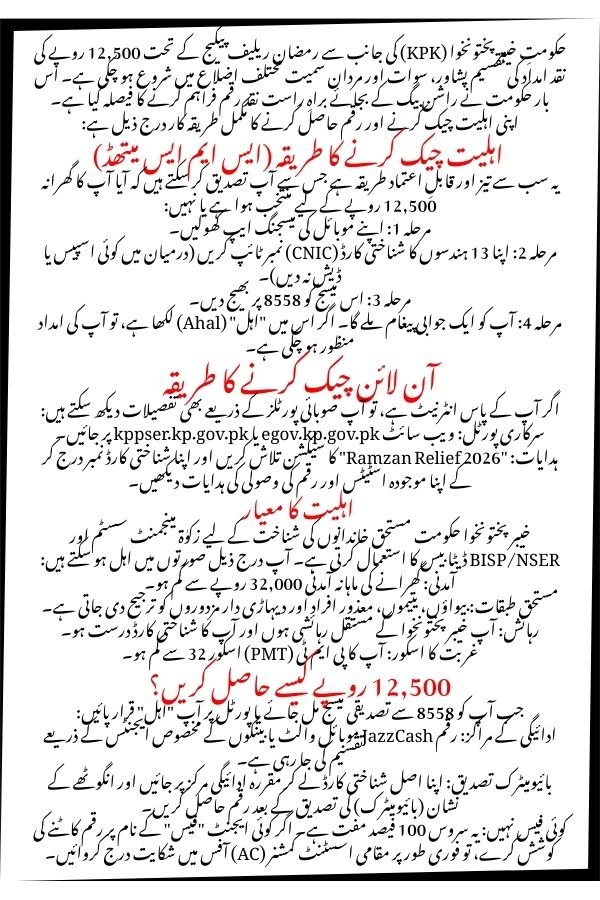 حکومت خیبر پختونخوا (KPK) کی جانب سے رمضان ریلیف پیکیج کے تحت 12,500 روپے کی
نقد امداد کی تقسیم پشاور، سوات اور مردان سمیت مختلف اضلاع میں شروع ہو چکی ہے۔ اس
بار حکومت نے راشن بیگ کے بجائے براہِ راست نقد رقم فراہم کرنے کا فیصلہ کیا ہے۔
اپنی اہلیت چیک کرنے اور رقم حاصل کرنے کا مکمل طریقہ کار درج ذیل ہے:
اہلیت چیک کرنے کا طریقہ (ایس ایم ایس میتھڈ)
یہ سب سے تیز اور قابلِ اعتماد طریقہ ہے جس سے آپ تصدیق کر سکتے ہیں کہ آیا آپ کا گھرانہ
12,500 روپے کے لیے منتخب ہوا ہے یا نہیں:
مرحلہ 1: اپنے موبائل کی میسجنگ ایپ کھولیں۔
مرحلہ 2: اپنا 13 ہندسوں کا شناختی کارڈ (CNIC) نمبر ٹائپ کریں (درمیان میں کوئی اسپیس یا
ڈیش نہ دیں)۔
مرحلہ 3: اس میسج کو 8558 پر بھیج دیں۔
مرحلہ 4: آپ کو ایک جوابی پیغام ملے گا۔ اگر اس میں "اہل" (Ahal) لکھا ہے، تو آپ کی امداد
منظور ہو چکی ہے۔
آن لائن چیک کرنے کا طریقہ
اگر آپ کے پاس انٹرنیٹ ہے، تو آپ صوبائی پورٹلز کے ذریعے بھی تفصیلات دیکھ سکتے ہیں:
سرکاری پورٹل: ویب سائٹ egov.kp.gov.pk یا kppser.kp.gov.pk پر جائیں۔
ہدایات: "Ramzan Relief 2026" کا سیکشن تلاش کریں اور اپنا شناختی کارڈ نمبر درج کر
کے اپنا موجودہ اسٹیٹس اور رقم کی وصولی کی ہدایات دیکھیں۔
اہلیت کا معیار
خیبر پختونخوا حکومت مستحق خاندانوں کی شناخت کے لیے زکوٰۃ مینجمنٹ سسٹم اور
BISP/NSER ڈیٹا بیس کا استعمال کرتی ہے۔ آپ درج ذیل صورتوں میں اہل ہو سکتے ہیں:
آمدنی: گھرانے کی ماہانہ آمدنی 32,000 روپے سے کم ہو۔
مستحق طبقات: بیواؤں، یتیموں، معذور افراد اور دیہاڑی دار مزدوروں کو ترجیح دی جاتی ہے۔
رہائش: آپ خیبر پختونخوا کے مستقل رہائشی ہوں اور آپ کا شناختی کارڈ درست ہو۔
غربت کا اسکور: آپ کا پی ایم ٹی (PMT) اسکور 32 سے کم ہو۔
12,500 روپے کیسے حاصل کریں؟
جب آپ کو 8558 سے تصدیقی میسج مل جائے یا پورٹل پر آپ "اہل" قرار پائیں:
ادائیگی کے مراکز: رقم JazzCash موبائل والٹ یا بینکوں کے مخصوص ایجنٹس کے ذریعے
تقسیم کی جا رہی ہے۔
بائیومیٹرک تصدیق: اپنا اصل شناختی کارڈ لے کر مقررہ ادائیگی مرکز پر جائیں اور انگوٹھے کے
نشان (بائیومیٹرک) کی تصدیق کے بعد رقم حاصل کریں۔
کوئی فیس نہیں: یہ سروس 100 فیصد مفت ہے۔ اگر کوئی ایجنٹ "فیس" کے نام پر رقم کاٹنے کی
کوشش کرے، تو فوری طور پر مقامی اسسٹنٹ کمشنر (AC) آفس میں شکایت درج کروائیں۔